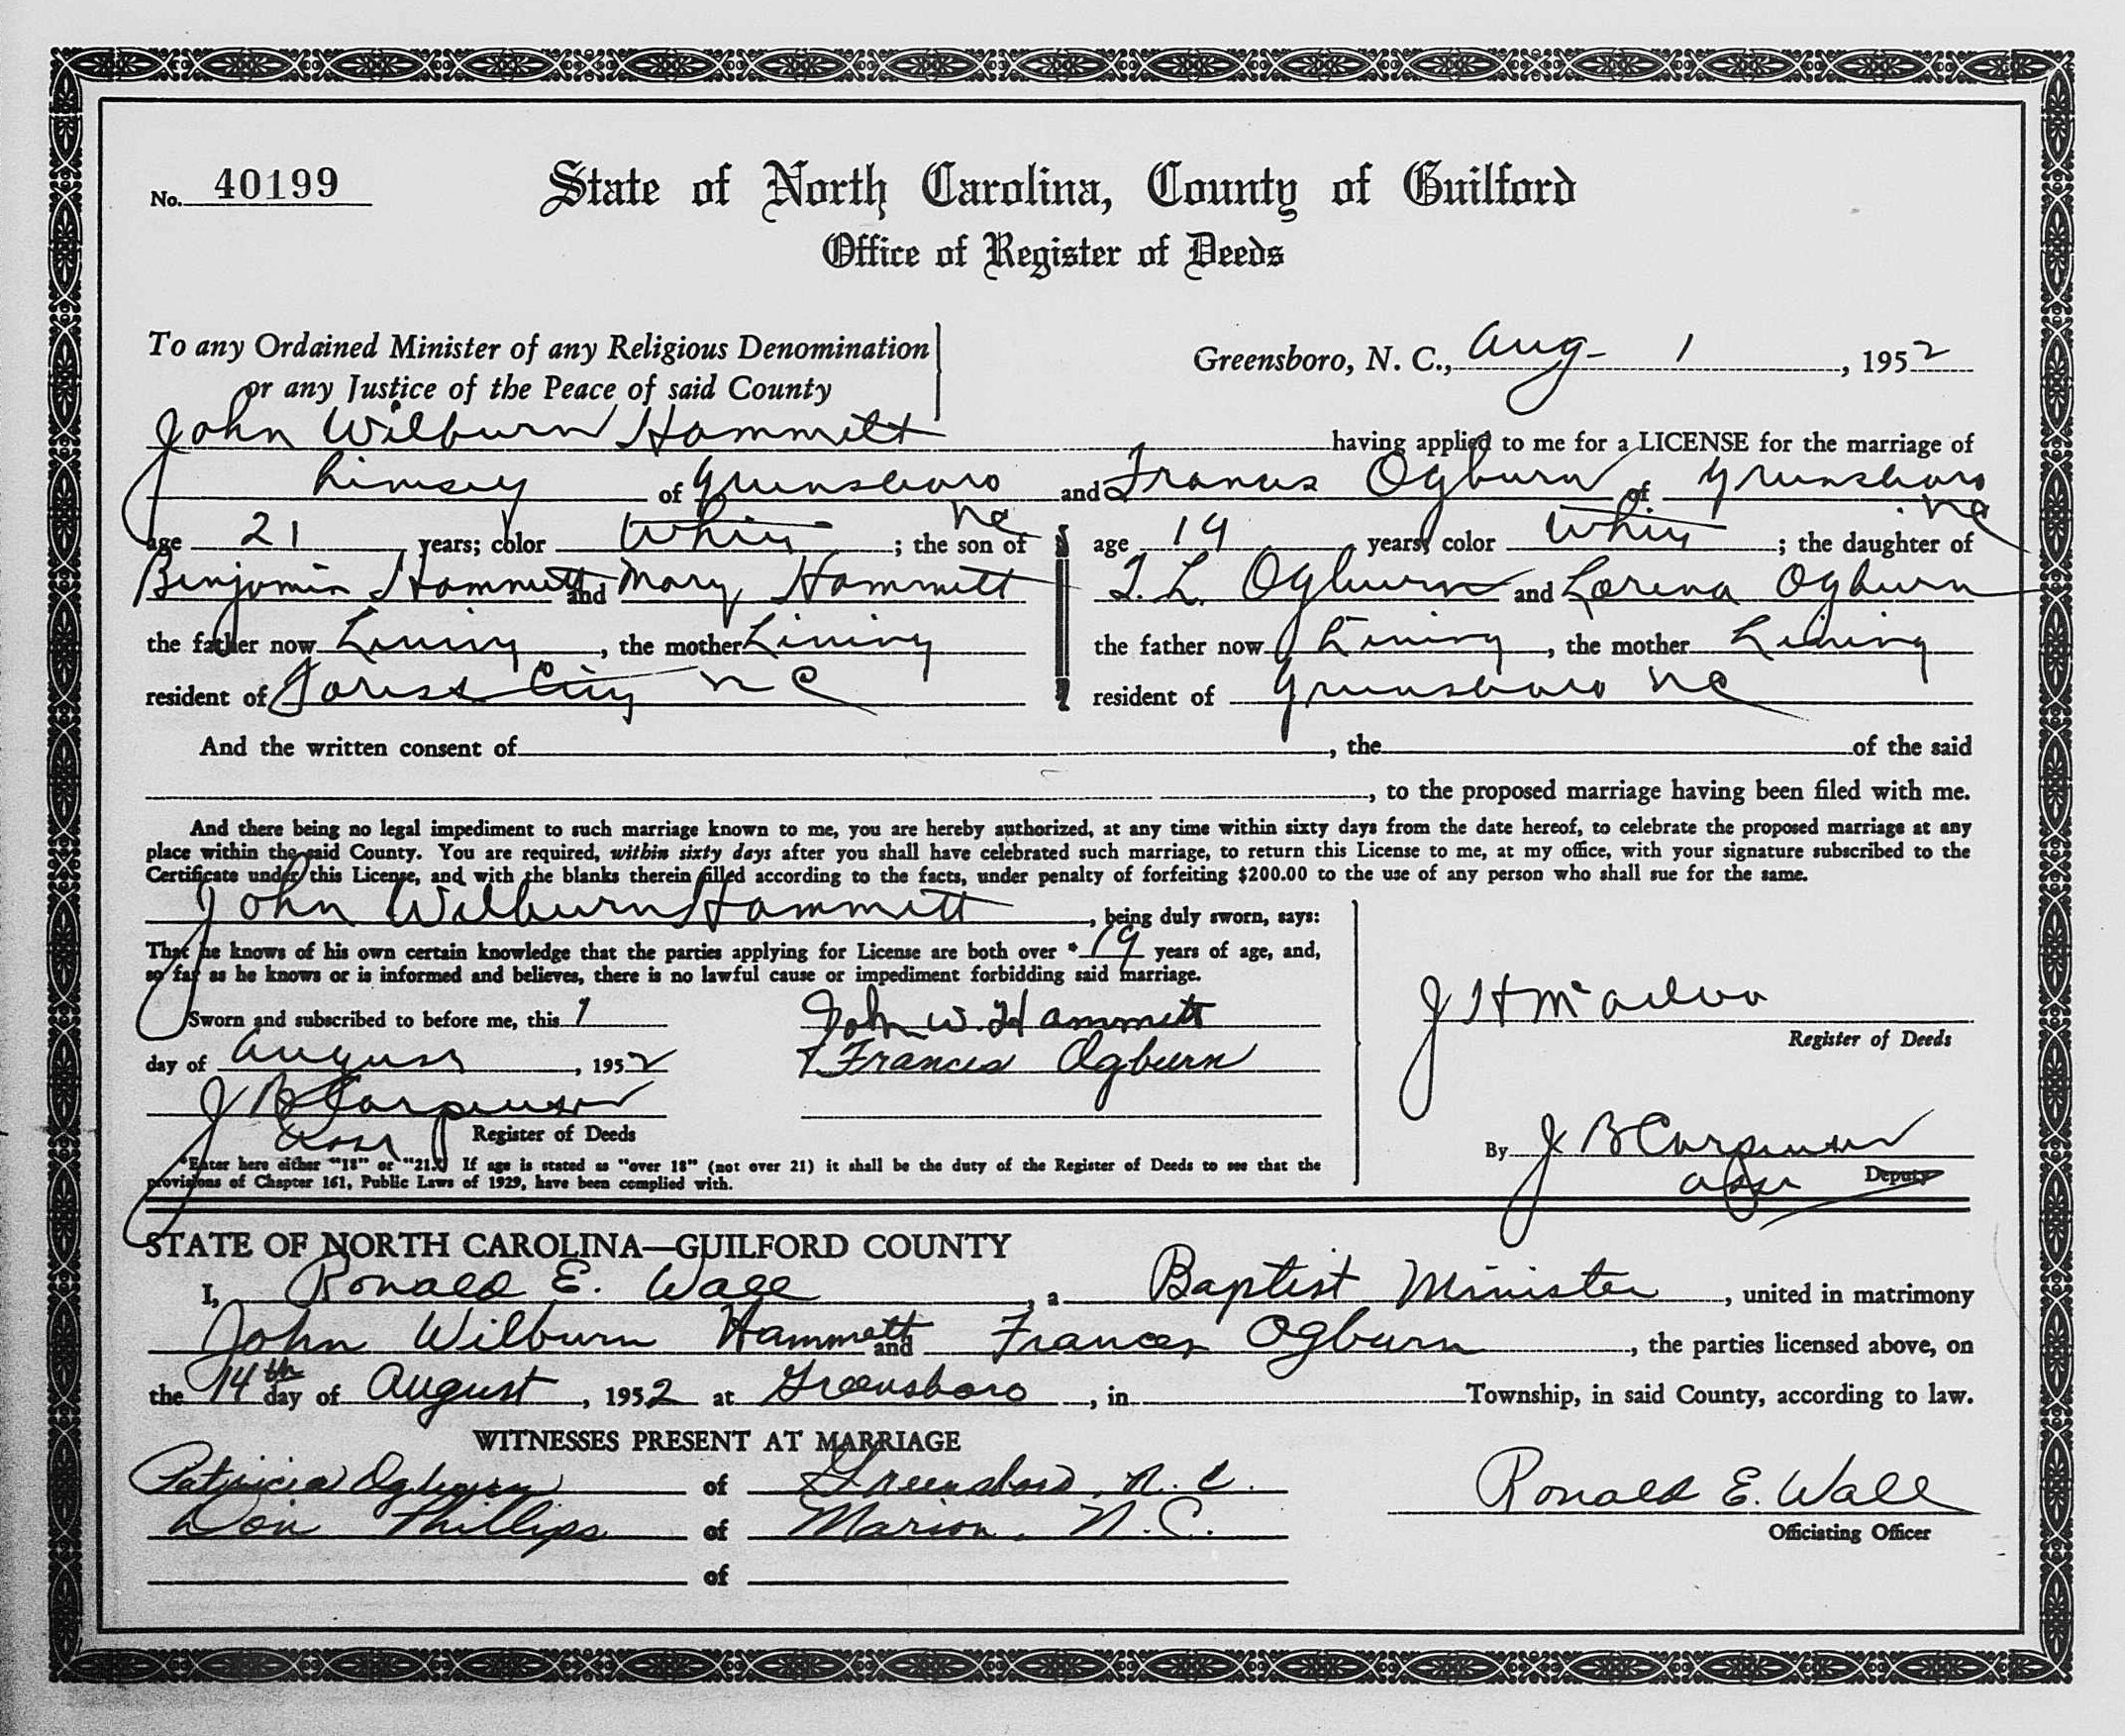 No. 40199
State of North Carolina, County of Guilford
Office of Register of Deeds
To any Ordained Minister of any Religious Denomination
or any Justice of the Peace of said County
Greensboro, N. C., Aug 1, 1952
John Wilburn Hammett having applied to me for a LICENSE for the marriage of
himself of Greensboro NC and Frances Ogburn of Greensboro NC
age 21 years; color White; the son of
Benjamin Hammett and Mary Hammett
the father now Living, the mother Living
resident of Forest City NC
age 19 years; color White; the daughter of
T. L. Ogburn and Lorena Ogburn
the father now Living, the mother Living
resident of Greensboro NC
And the written consent of , the of the said
, to the proposed marriage having been filed with me.
And there being no legal impediment to such marriage known to me, you are hereby authorized, at any time within sixty days from the date hereof, to celebrate the proposed marriage at any
place within the said County. You are required, within sixty days after you shall have celebrated such marriage, to return this License to me, at my office, with your signature subscribed to the
Certificate under this License, and with the blanks therein filled according to the facts, under penalty of forfeiting $200.00 to the use of any person who shall sue for the same.
John Wilburn Hammett, being duly sworn, says:
That he knows of his own certain knowledge that the parties applying for License are both over *19 years of age, and,
so far as he knows or is informed and believes, there is no lawful cause or impediment forbidding said marriage.
Sworn and subscribed to before me, this 1
day of August, 1952
J B Carpenter
Asst Register of Deeds
John W. Hammett
Frances Ogburn
*Enter here either "18" or "21." If age is stated as "over 18" (not over 21) it shall be the duty of the Register of Deeds to see that the
provisions of Chapter 161, Public Laws of 1929, have been complied with.
J H
Register of Deeds
By J B Carpenter
Asst Deputy
STATE OF NORTH CAROLINA—GUILFORD COUNTY
I, Ronald E. Wall, a Baptist Minister, united in matrimony
John Wilburn Hammett and Frances Ogburn, the parties licensed above, on
the 14th day of August, 1952 at Greensboro, in Township, in said County, according to law.
WITNESSES PRESENT AT MARRIAGE
Patricia Ogburn of Greensboro, N. C.
Don Phillips of Marion, N. C.
of
Ronald E. Wall
Officiating Officer